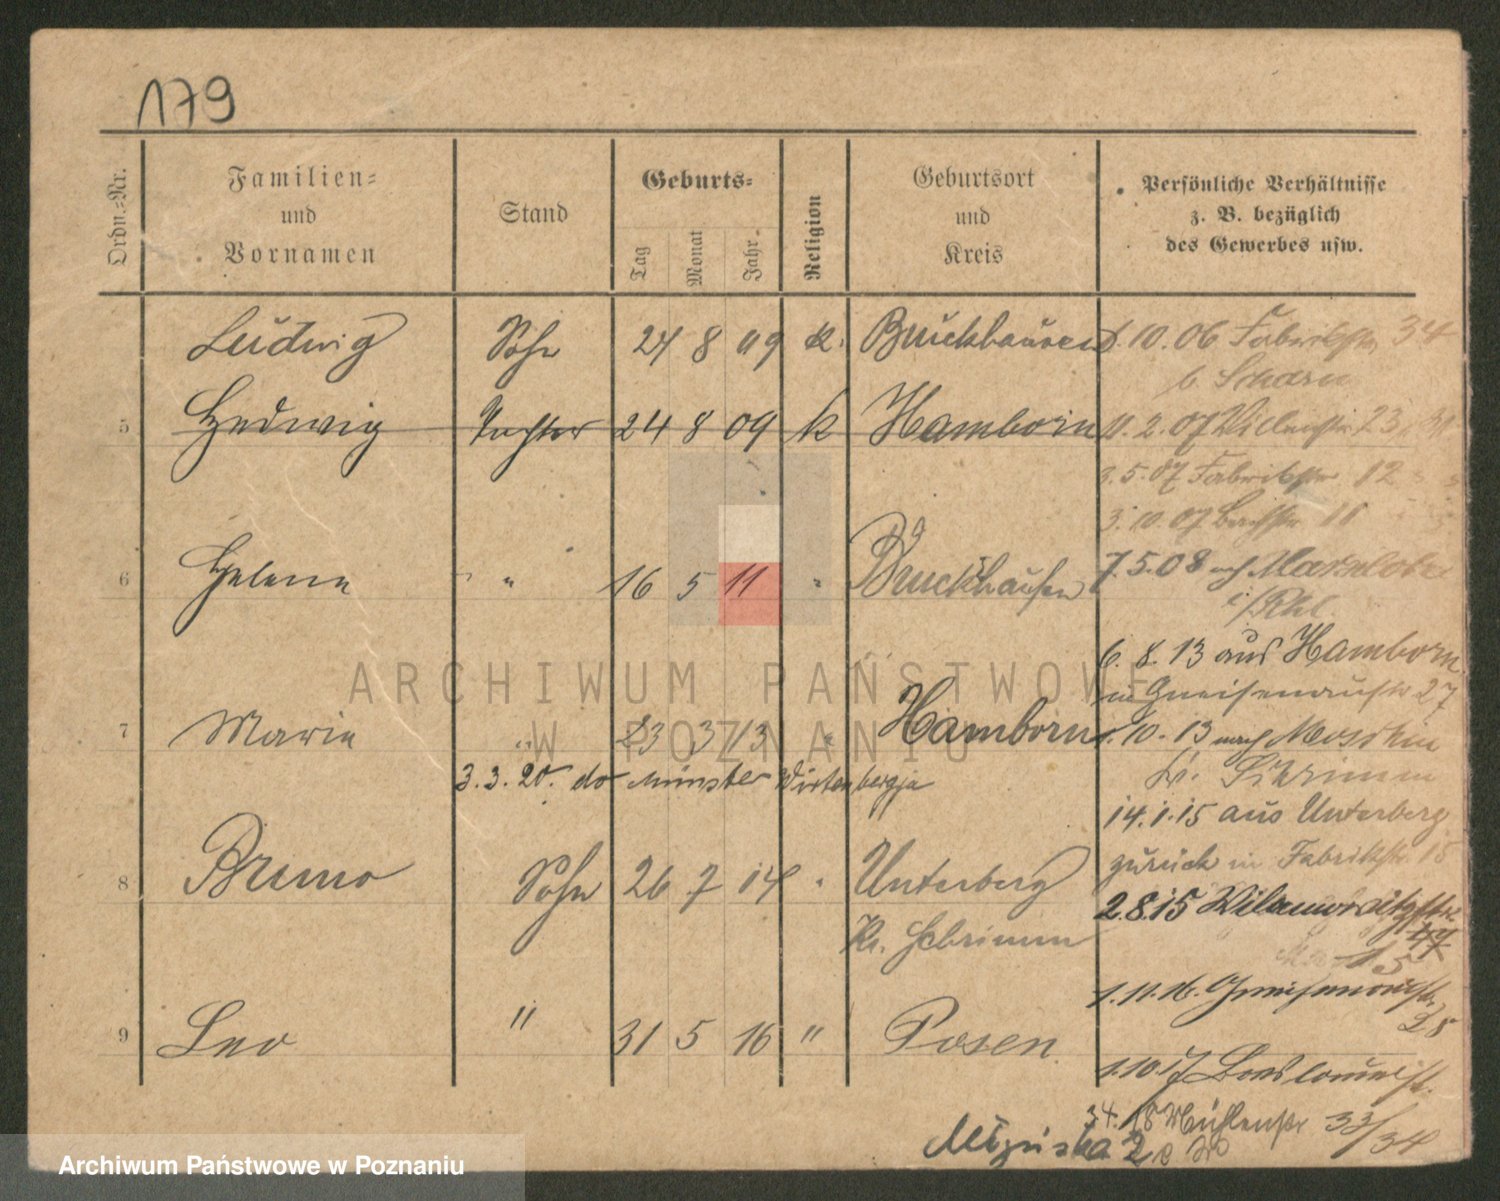 179
Ordn.-Nr.
Familien-
und
Vornamen
Stand
Geburts-
Tag
Monat
Jahr
Religion
Geburtsort
und
Kreis
Persönliche Verhältnisse
z. B. bezüglich
des Gewerbes usw.
Ludwig Sohn 24 8 09 k. Bruckhausen
5 Hedwig Tochter 24 8 09 k Hamborn
6 Helene " 16 5 11 " Bruckhausen
7 Marie " 23 3 13 " Hamborn
3.3.20. do Münster
8 Bruno Sohn 26 7 14 " Unterberg
Kr. Schrimm
9 Leo " 31 5 16 " Posen
10.06 Fabrikstr. 34
b. Scharn
11.2.07
3.5.07 Fabrikstr 12
3.10.07 Bachstr 11
7.5.08 nach Marxloh
i/Rhl.
6.8.13 aus Hamborn
in Gneisenaustr 27
1.10.13 nach Moschin
Kr. Schrimm
14.1.15 aus Unterberg
zurück in Fabrikstr. 15
2.8.15 Wilamowitzstr.
47
15
1.11.16. Gneisenaustr.
28
1.10.17
3.4.18 Mühlenstr 33/34
2
ARCHIWUM PAŃSTWOWE
W POZNANIU
Archiwum Państwowe w Poznaniu